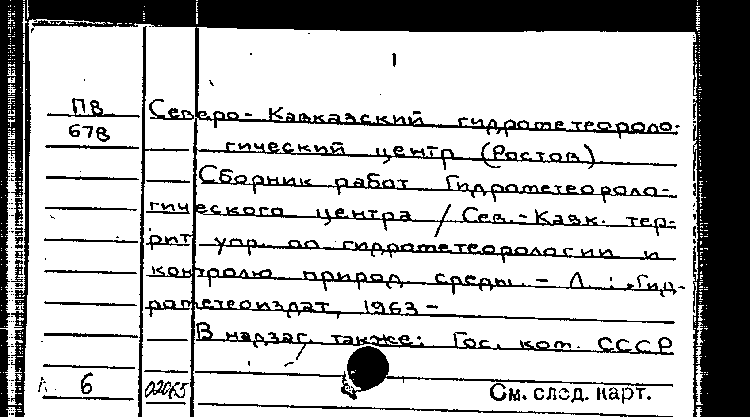 1
ПВ Северо-Кавказский гидрометеороло-
678 гический центр (Ростов)
Сборник работ Гидрометеороло-
гического центра / Сев.-Кавк. тер-
рит. упр. по гидрометеорологии и
контролю природ. среды. - Л. : Гид-
рометеоиздат, 1963 -
В надзаг. также: Гос. ком. СССР
6 02065 См. след. карт.